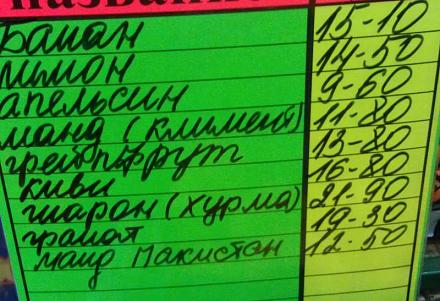 название
Банан 15-10
лимон 14-50
апельсин 9-60
манд (климент) 11-80
грейпфрут 13-80
киви 16-80
шарон (хурма) 21-90
гранат 19-30
манд Пакистан 12-50